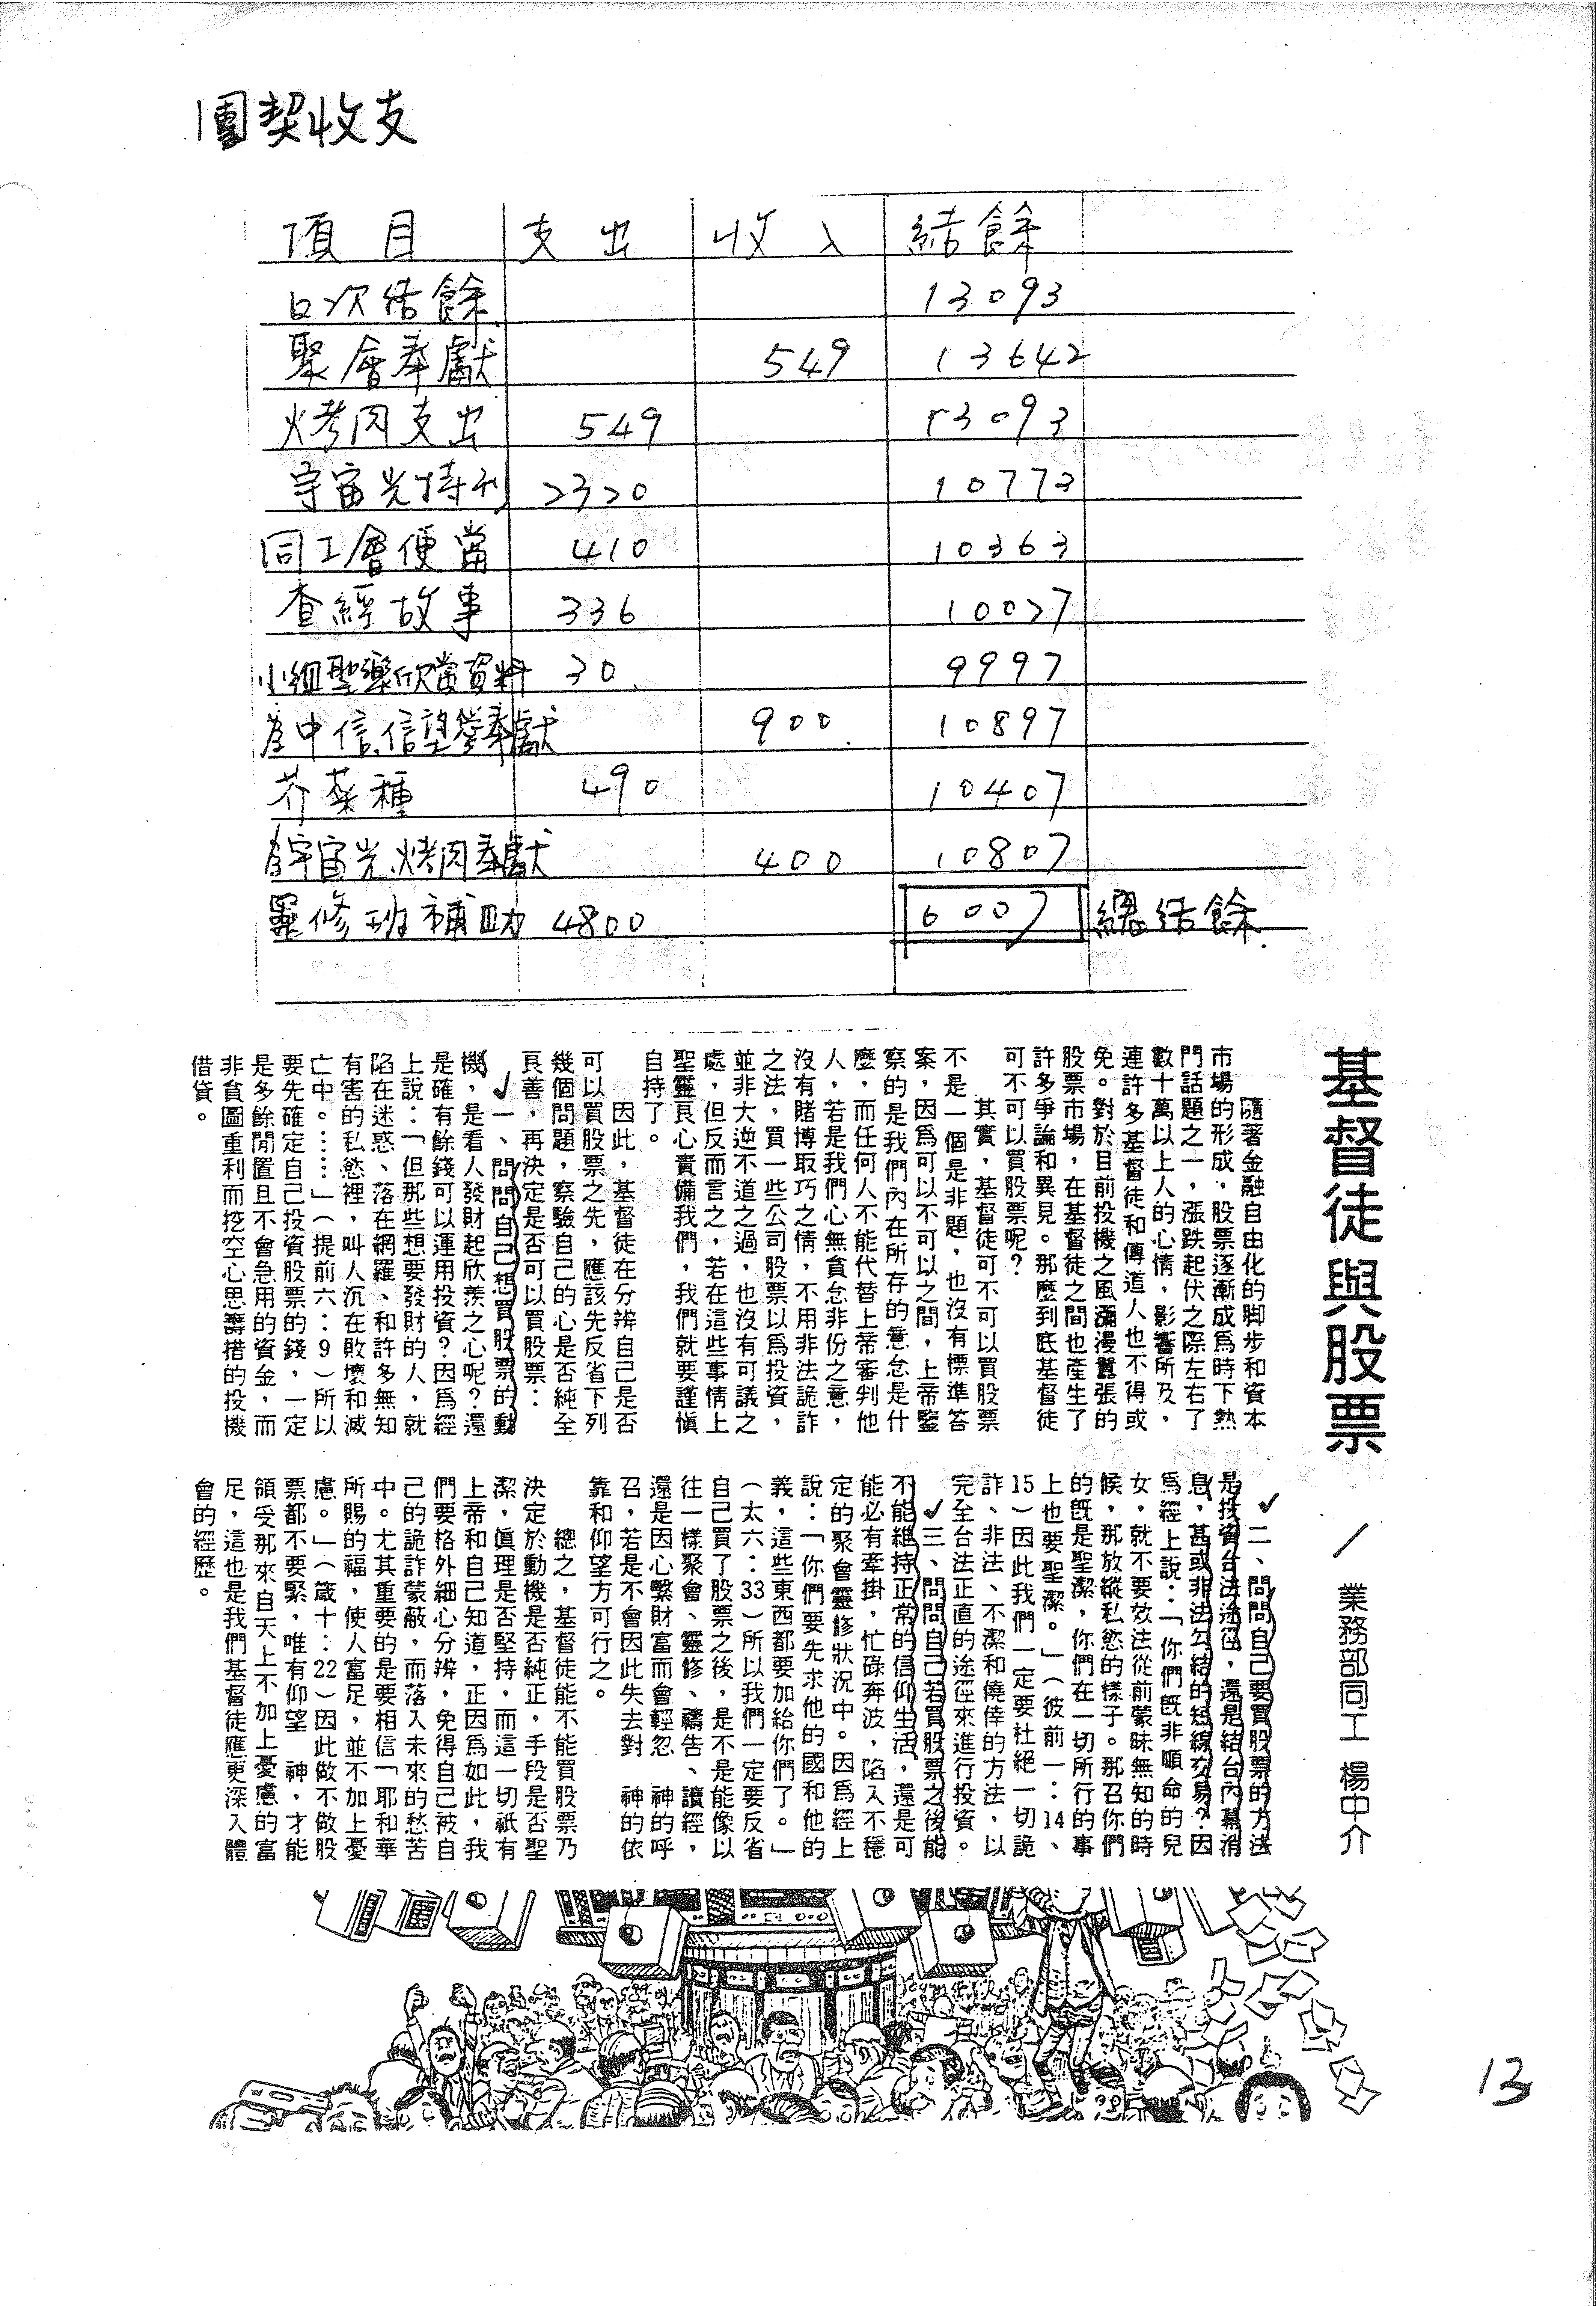 團契收支
項目 支出 收入 結餘
日次結餘 13093
聚會奉獻 549 13642
烤肉支出 549 13093
宇宙光特刊 2320 10773
同工會便當 410 10363
查經故事 336 10027
小組聖樂欣賞資料 30 9997
中信,信望愛奉獻 900 10897
芥菜種 490 10407
宇宙光,烤肉奉獻 400 10807
靈修班補助 4800 6007 總結餘
基督徒與股票
／ 業務部同工 楊中介
隨著金融自由化的脚步和資本
市場的形成，股票逐漸成爲時下熱
門話題之一，漲跌起伏之際左右了
數十萬以上人的心情，影響所及，
連許多基督徒和傳道人也不得或
免。對於目前投機之風瀰漫囂張的
股票市場，在基督徒之間也產生了
許多爭論和異見。那麼到底基督徒
可不可以買股票呢？
其實，基督徒可不可以買股票
不是一個是非題，也沒有標準答
案，因爲可以不可以之間，上帝鑒
察的是我們內在所存的意念是什
麼，而任何人不能代替上帝審判他
人，若是我們心無貪念非份之意，
沒有賭博取巧之情，不用非法詭詐
之法，買一些公司股票以爲投資，
並非大逆不道之過，也沒有可議之
處，但反而言之，若在這些事情上
聖靈良心責備我們，我們就要謹慎
自持了。
因此，基督徒在分辨自己是否
可以買股票之先，應該先反省下列
幾個問題，察驗自己的心是否純全
良善，再決定是否可以買股票：
✓一、問問自己想買股票的動
機，是看人發財起欣羨之心呢？還
是確有餘錢可以運用投資？因爲經
上說：「但那些想要發財的人，就
陷在迷惑、落在網羅、和許多無知
有害的私慾裡，叫人沉在敗壞和滅
亡中。……」（提前六：9）所以
要先確定自己投資股票的錢，一定
是多餘閒置且不會急用的資金，而
非貪圖重利而挖空心思籌措的投機
借貸。
✓二、問問自己要買股票的方法
是投資合法途徑，還是結合內幕消
息，甚或非法勾結的短線交易？因
爲經上說：「你們旣非順命的兒
女，就不要效法從前蒙昧無知的時
候，那放縱私慾的樣子。那召你們
的旣是聖潔，你們在一切所行的事
上也要聖潔。」（彼前一：14、
15）因此我們一定要杜絕一切詭
詐、非法、不潔和僥倖的方法，以
完全合法正直的途徑來進行投資。
✓三、問問自己若買股票之後能
不能維持正常的信仰生活，還是可
能必有牽掛，忙碌奔波，陷入不穩
定的聚會靈修狀況中。因爲經上
說：「你們要先求他的國和他的
義，這些東西都要加給你們了。」
（太六：33）所以我們一定要反省
自己買了股票之後，是不是能像以
往一樣聚會、靈修、禱告、讀經，
還是因心繫財富而會輕忽　神的呼
召，若是不會因此失去對　神的依
靠和仰望方可行之。
總之，基督徒能不能買股票乃
決定於動機是否純正，手段是否聖
潔，眞理是否堅持，而這一切衹有
上帝和自己知道，正因爲如此，我
們要格外細心分辨，免得自己被自
己的詭詐蒙蔽，而落入未來的愁苦
中。尤其重要的是要相信「耶和華
所賜的福，使人富足，並不加上憂
慮。」（箴十：22）因此做不做股
票都不要緊，唯有仰望　神，才能
領受那來自天上不加上憂慮的富
足，這也是我們基督徒應更深入體
會的經歷。
13